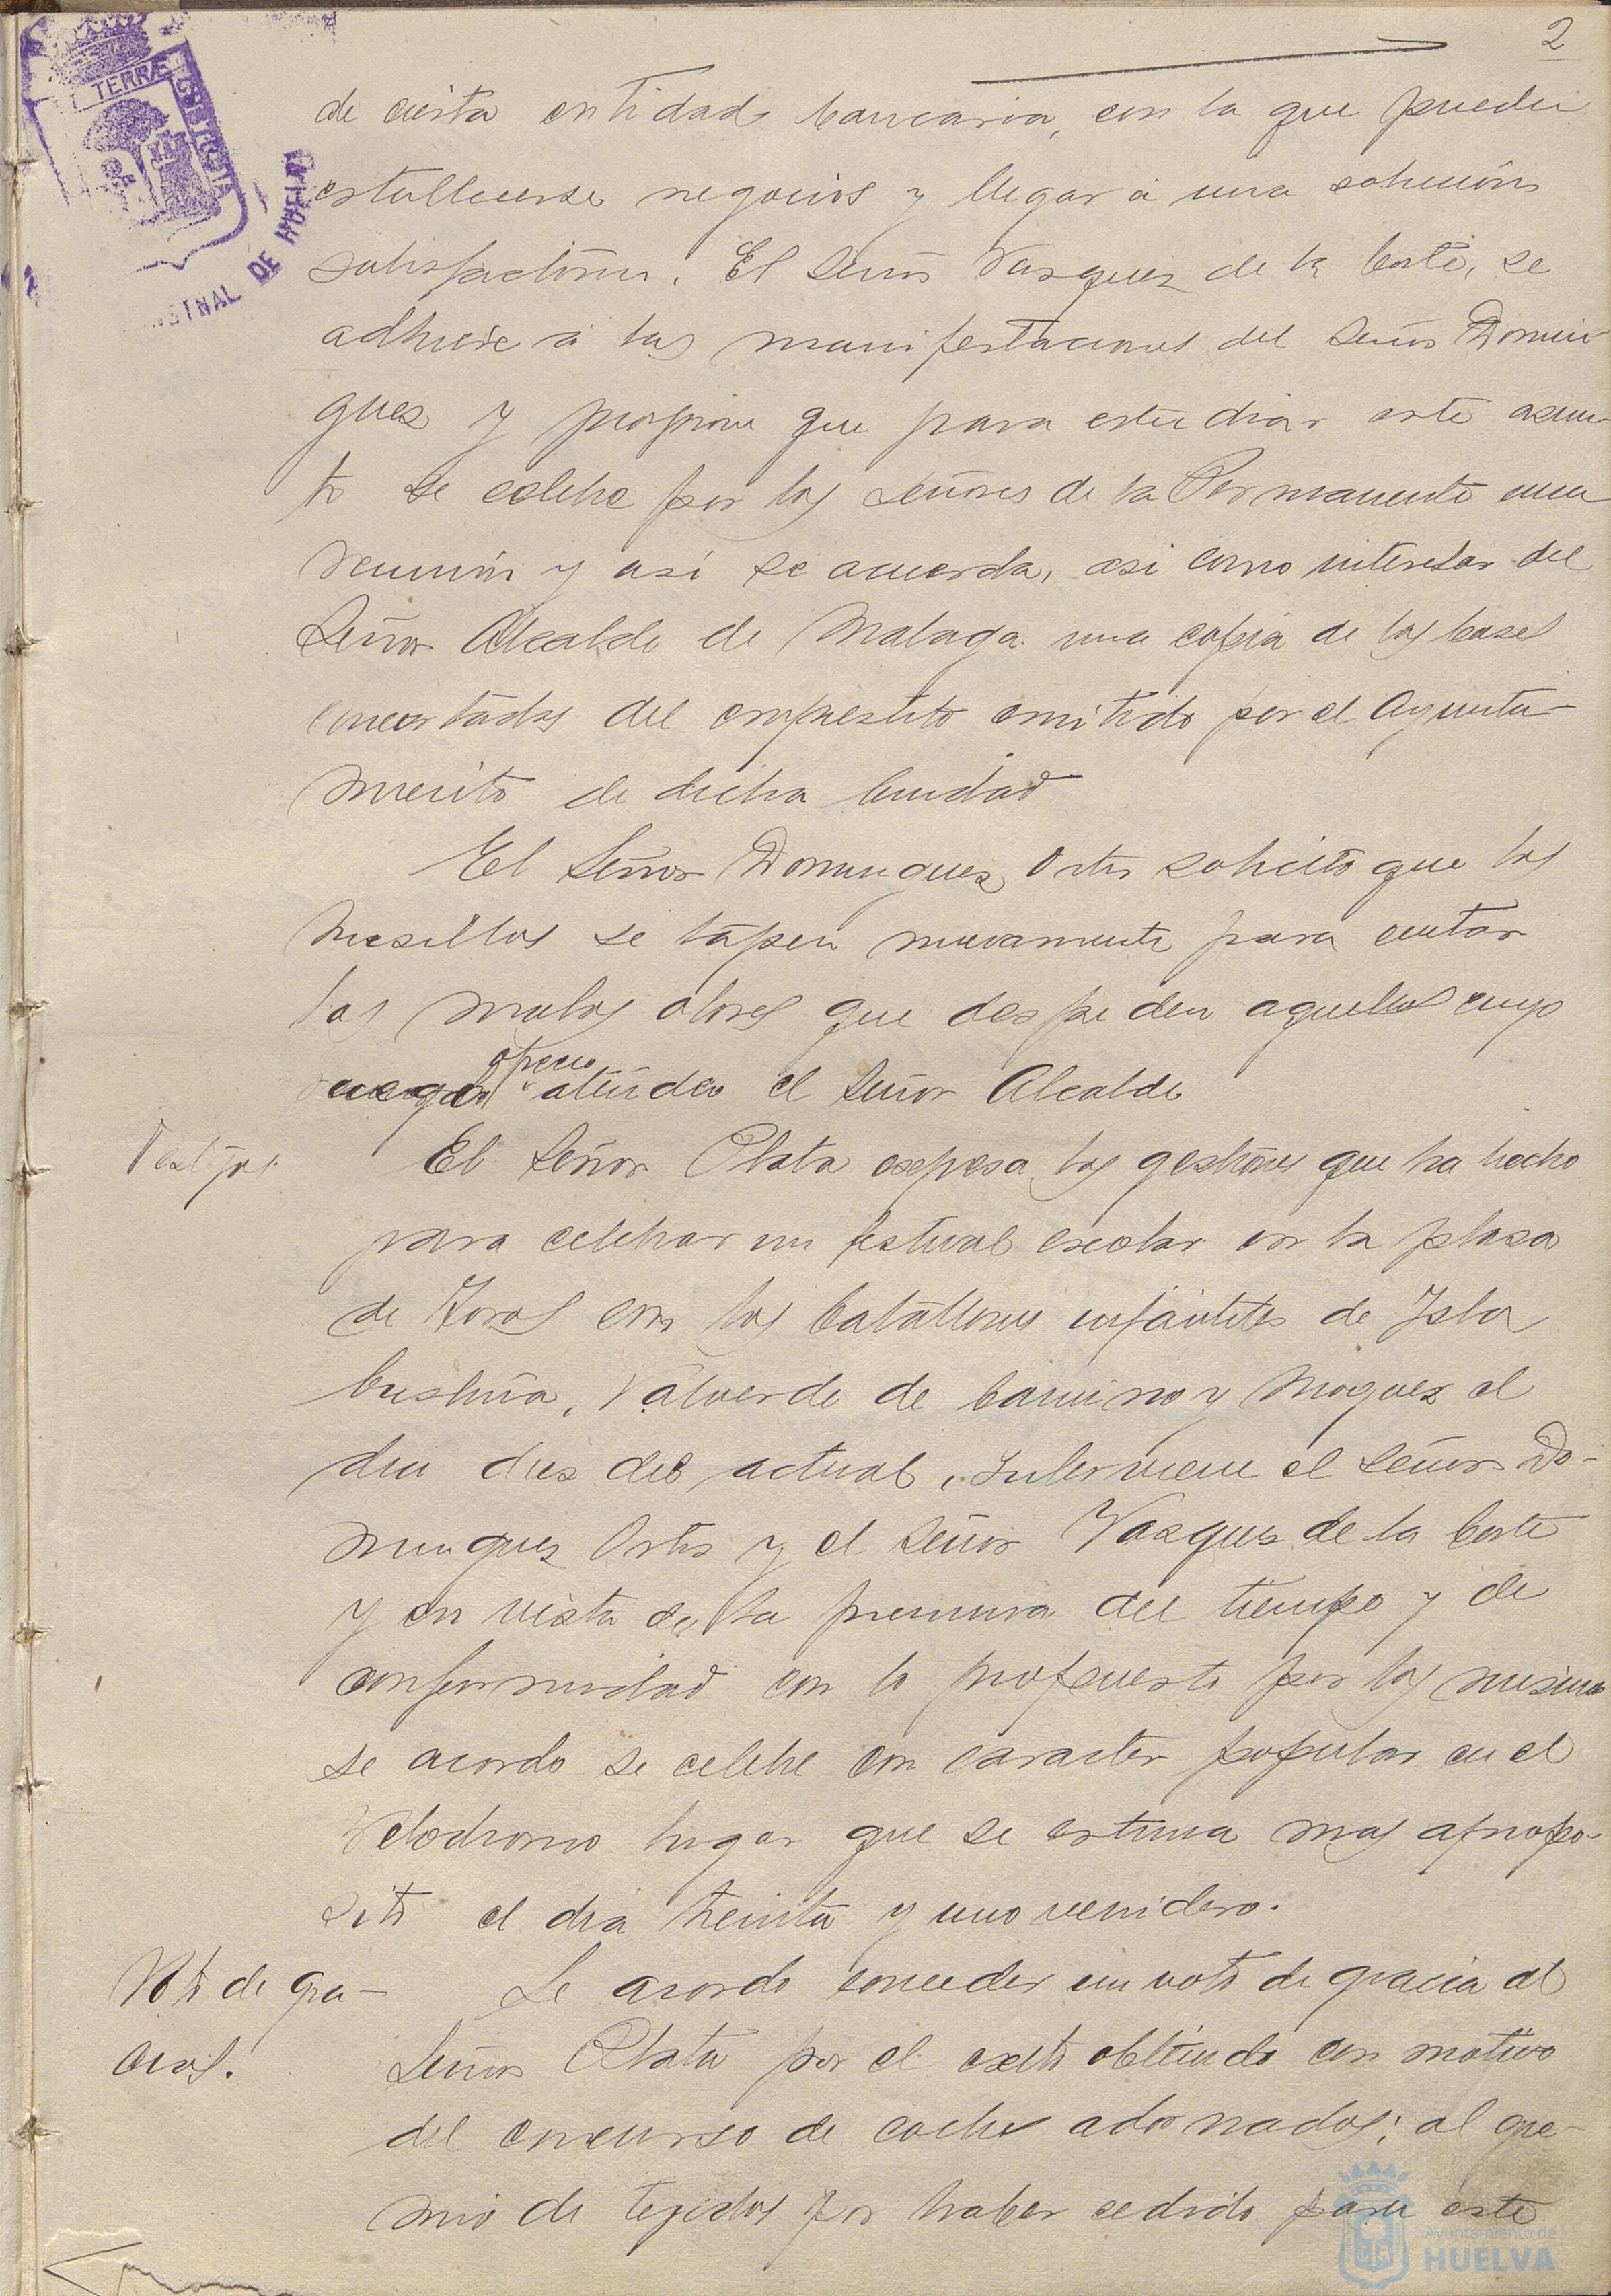 2
de cierta entidad bancaria, con la que pueden
establecerse negocios y llegar á una solución
satisfactoria. El Señor Vazquez de la Corte, se
adhiere á las manifestaciones del Señor Domin
guez y propone que para estudiar este asun-
to se celebre por los señores de la Permanente una
reunión y así se acuerda, asi como interesar del
Señor Alcalde de Malaga una copia de las bases
concertadas del emprestito emitido por el Ayunta-
miento de dicha Ciudad
El Señor Dominguez Ortiz solicitó que los
husillos se tapen nuevamente para evitar
los malos olores que despiden aquellos cuyo
ruego ofreció atender el Señor Alcalde
Festejos.
El Señor Plata expresa las gestiones que ha hecho
para celebrar un festival escolar en la plaza
de Toros con los batallones infantiles de Isla
Cristina, Valverde de Camino y Moguer el
dia diez del actual, Interviene el Señor Do-
minguez Ortiz y el Señor Vazquez de la Corte
y en vista de la premura del tiempo y de
conformidad con lo propuesto por los mismos
se acordo se celebre con caracter popular en el
Velodromo lugar que se estima mas apropo-
sito el dia treinta y uno venidero.
Voto de gra-
cias.
Se acordo conceder un voto de gracia al
Señor Plata por el exito obtenido con motivo
del concurso de coches adornados; al gre-
mio de tejidos por haber cedido para este
TERRÆ CUSTODIA
DE HUELVA
Ayuntamiento de
HUELVA